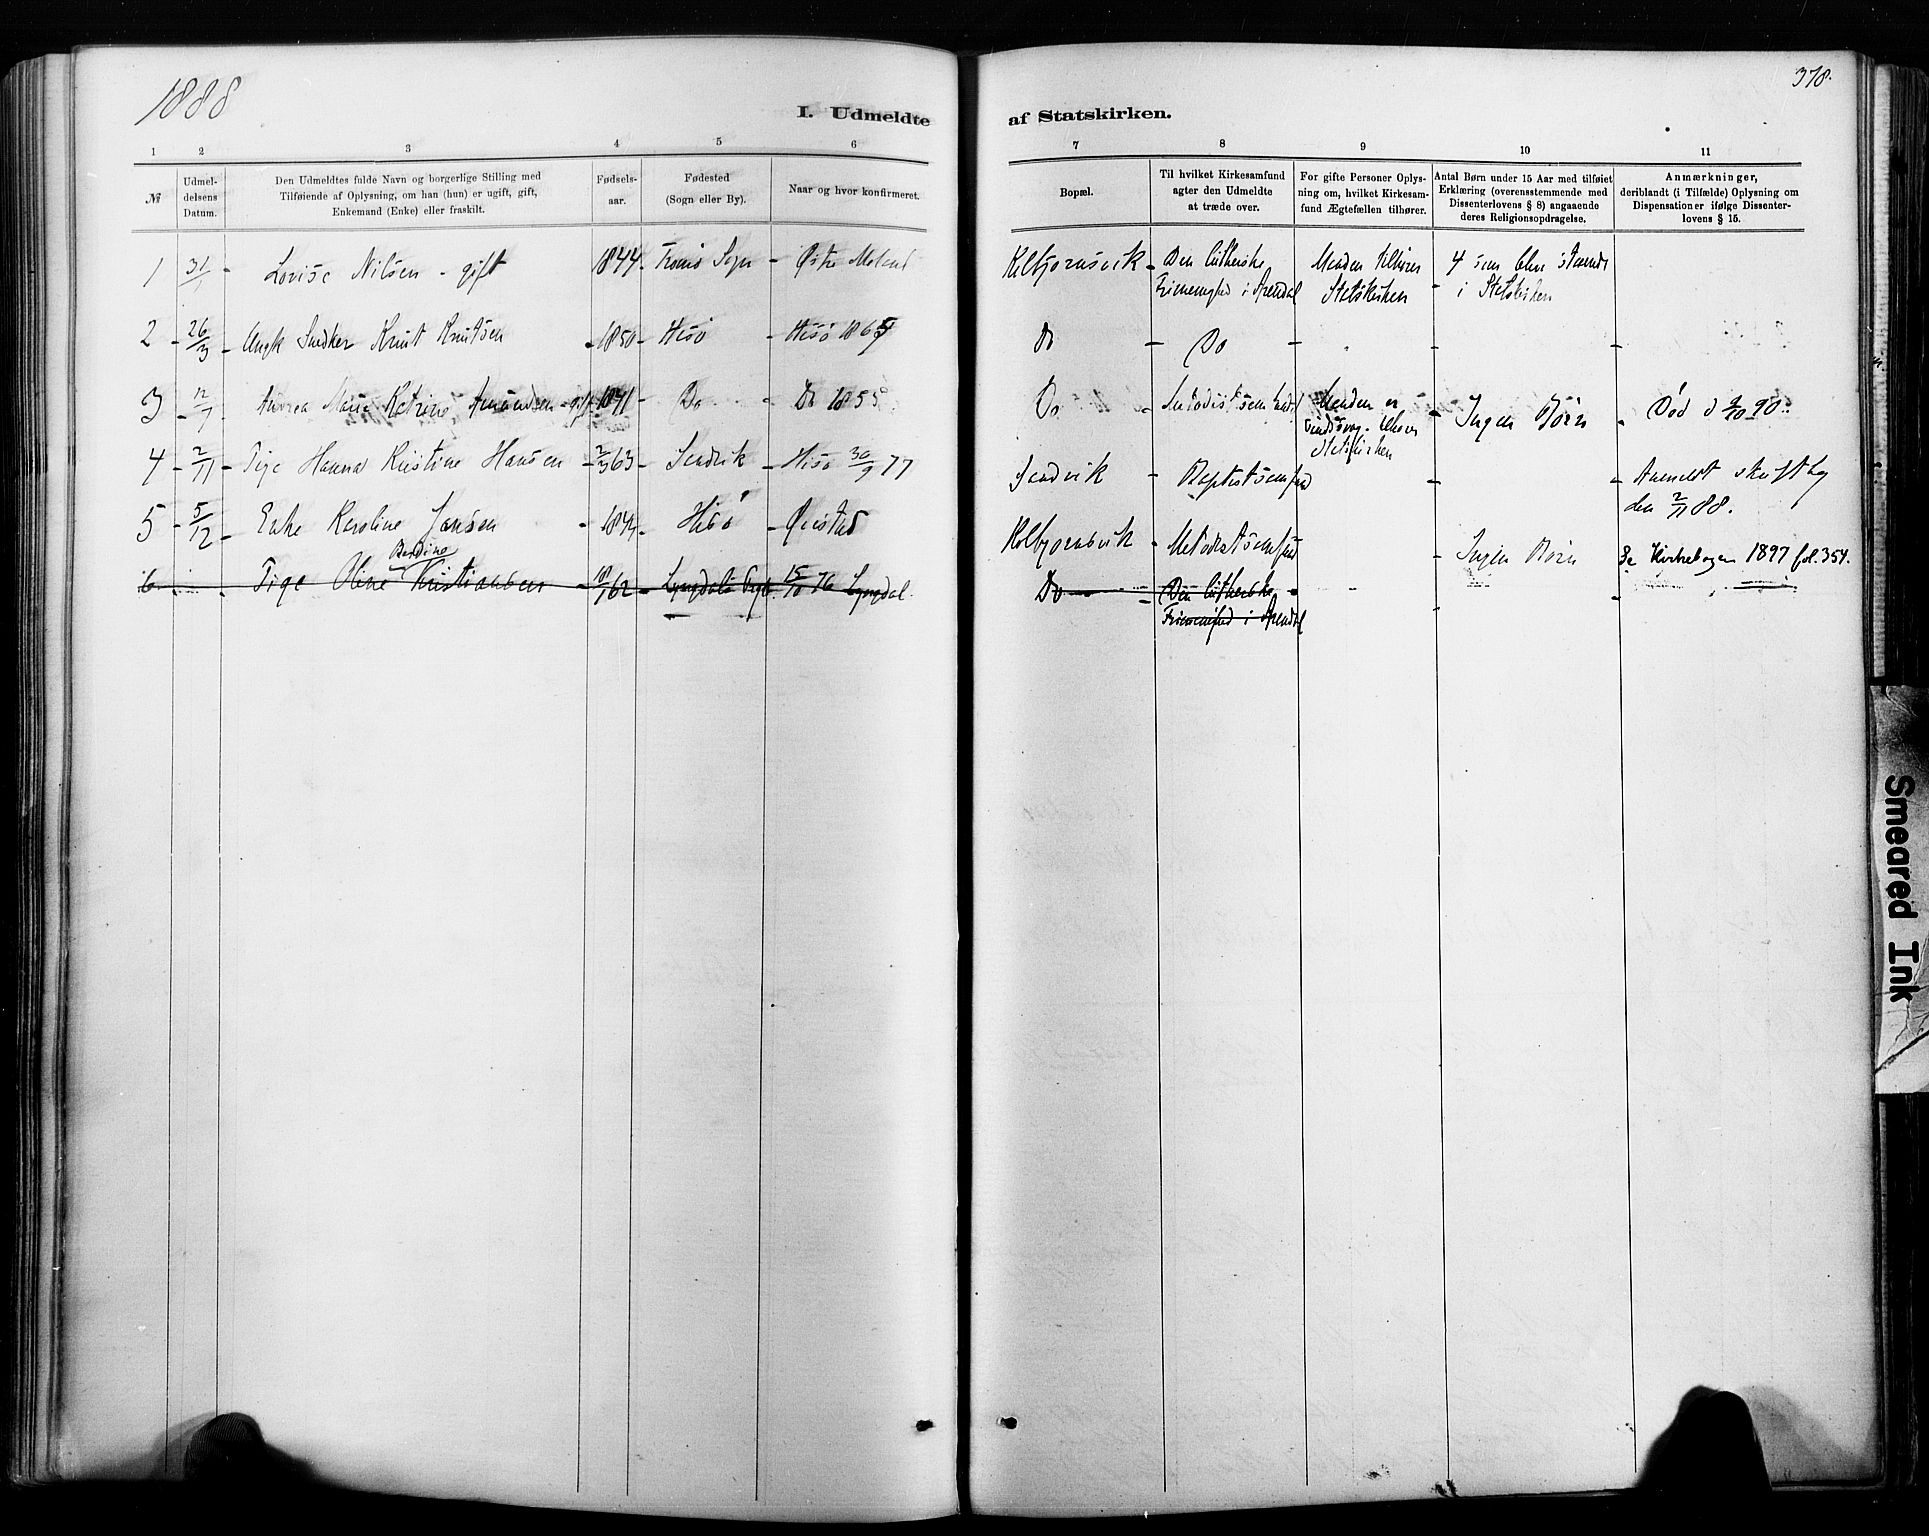 1888
378.
I. Udmeldte
af Statskirken.
1 2 3 4 5 6
7 8 9 10 11
№
Udmel-
delsens
Datum.
Den Udmeldtes fulde Navn og borgerlige Stilling med
Tilføiende af Oplysning, om han (hun) er ugift, gift,
Enkemand (Enke) eller fraskilt.
Fødsels-
aar.
Fødested
(Sogn eller By).
Naar og hvor konfirmeret.
Bopæl.
Til hvilket Kirkesamfund
agter den Udmeldte
at træde over.
For gifte Personer Oplys-
ning om, hvilket Kirkesam-
fund Ægtefællen tilhører.
Antal Børn under 15 Aar med tilføiet
Erklæring (overensstemmende med
Dissenterlovens § 8) angaaende
deres Religionsopdragelse.
Anmærkninger,
deriblandt (i Tilfælde) Oplysning om
Dispensationer ifølge Dissenter-
lovens § 15.
1 31/1 Lovise Nilsen - gift 1844 Tromø Sogn - Østre Moland
Kolbjørnsvik - Den lutherske Manden tilhører 4 som blev staaende
Frimenighed i Arendal Statskirken i Statskirken
2 26/3 Ungk Snedker Knut Knutsen 1850 - Hisø - Hisø 1865
Do - Do
3 12/7 Andrea Marie Katrine Amundsen - gift 1841 Do Do 1855
Do Metodistsamfund Manden er
Ingen Børn Død d 2/10 90.
Statskirken
4 2/11 Pige Hanna Kristine Hansen 2/3 63 Sandvik Hisø 30/9 77
Sandvik Baptistsamfund Anmeldt skriftlig
den 2/11 88.
5 5/12 Enke Karoline Jansen Hisø Øiestad
Kolbjørnsvik Metodistsamfund Ingen Børn Se Kirkebogen 1897 fol. 354.
Berdine
6 Pige Oline Kristiansen 10/1 62 Lyngdals 15/10 76 Lyngdal
Do Den lutherske
Frimenighed i Arendal
Smeared Ink